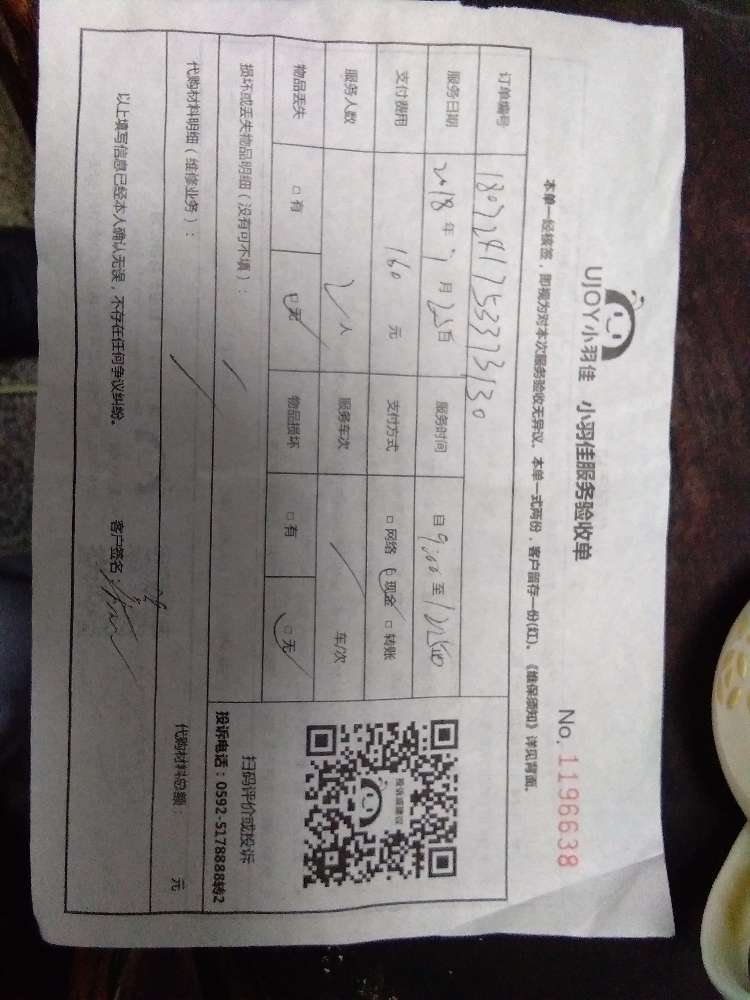 UJOY小羽佳 小羽佳服务验收单
No. 1196638
本单一经核签，即视为对本次服务验收无异议。本单一式两份，客户留存一份(红)。《维保须知》详见背面。
订单编号
服务日期 2018 年 7 月 25 日 服务时间 自 9:00 至
支付费用 160 元 支付方式 □ 网络 □ 现金 □ 转账
服务人数 2 人 服务车次 车/次
物品丢失 □ 有 □ 无 物品损坏 □ 有 □ 无
损坏或丢失物品明细（没有可不填）：
投诉或建议
扫码评价或投诉
投诉电话：0592-5178888转2
代购材料明细（维修业务）：
代购材料总额： 元
以上填写信息已经本人确认无误，不存在任何争议纠纷。 客户签名：